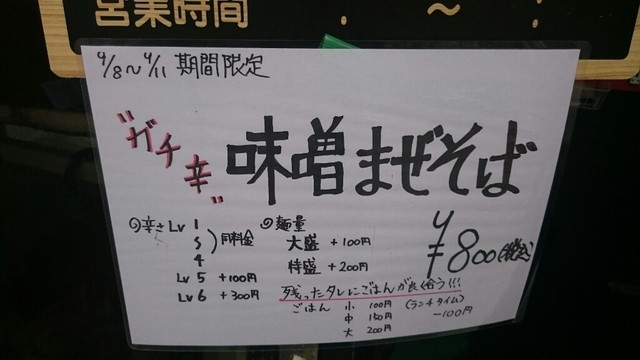 営業時間 : ～ :
4/8～4/11 期間限定
"ガチ辛" 味噌まぜそば
辛さLv 1
５
4
同料金
Lv 5 +100円
Lv 6 +300円
麺量
大盛 +100円
特盛 +200円
¥800(税込)
残ったタレにごはんが良く合う!!!
ごはん 小 100円 (ランチタイム)
中 150円 -100円
大 200円